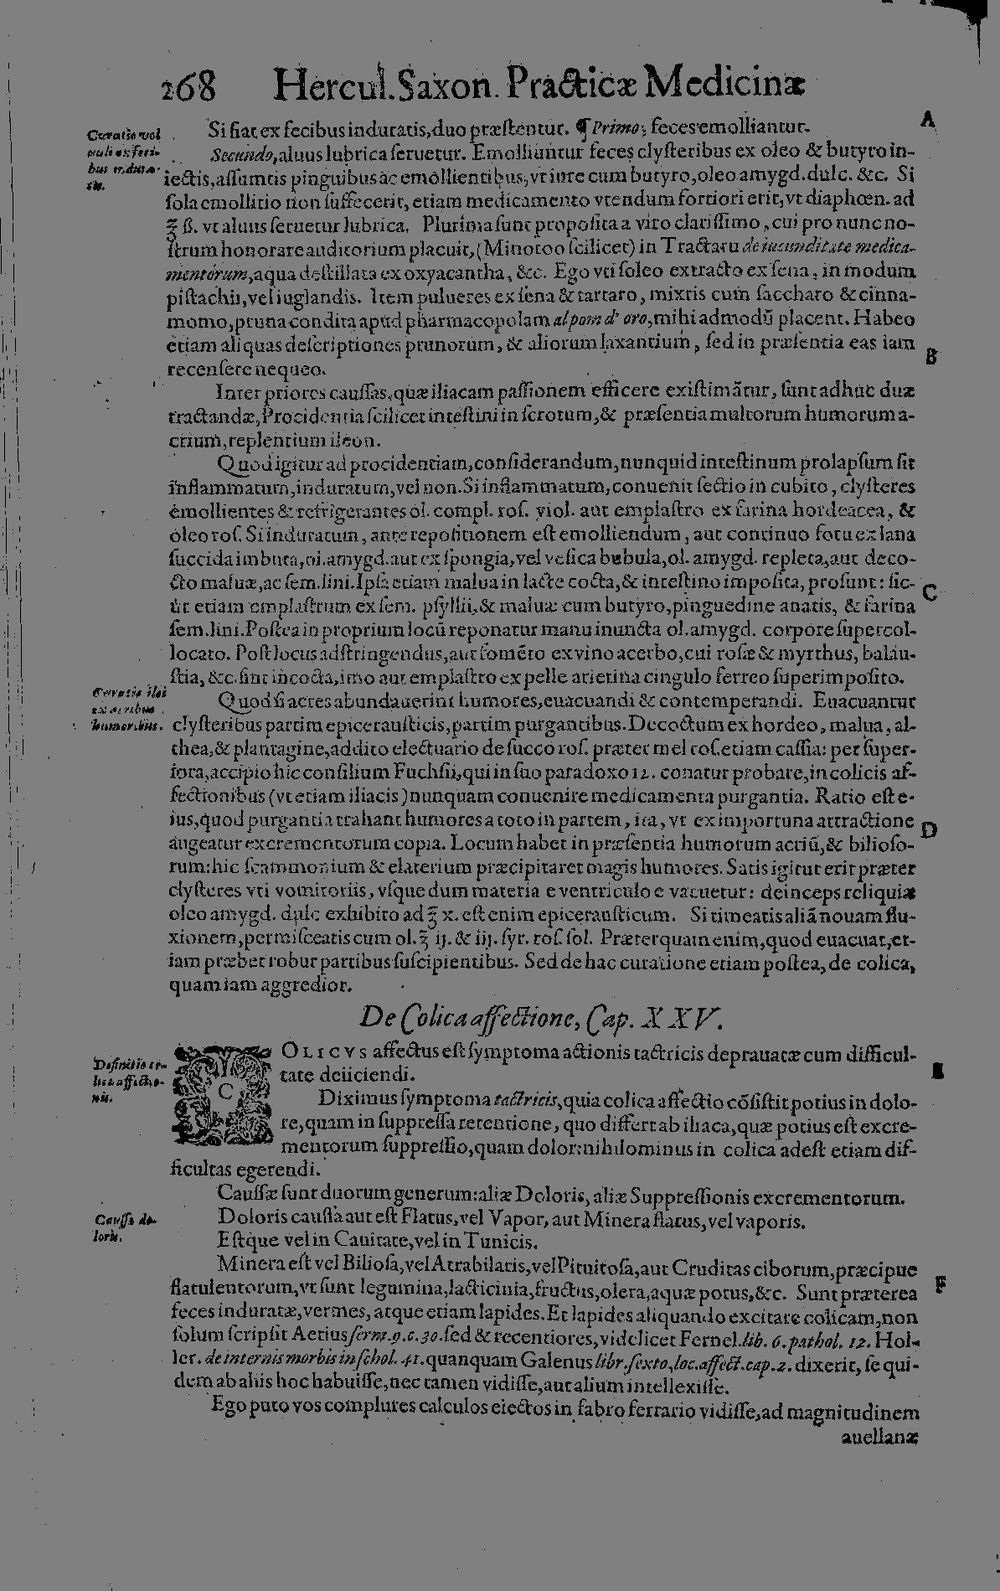 268 Hercul. Saxon. Practicæ Medicinæ
Si fiat ex fecibus induratis, duo præstentur. ¶ Primo, feces emolliantur.
Secundo, aluus lubrica seruetur. Emolliuntur feces clysteribus ex oleo & butyro in-
iectis, assumtis pinguibus ac emollientibus, vt iure cum butyro, oleo amygd. dulc. &c. Si
sola emollitio non suffecerit, etiam medicamento vtendum fortiori erit, vt diaphœn. ad
℥ ß. vt aluus seruetur lubrica. Plurima sunt proposita a viro clarissimo, cui pro nunc no-
strum honorare auditorium placuit, (Minotoo scilicet) in Tractatu de iucunditate medica-
mentorum, aqua destillata ex oxyacantha, &c. Ego vti soleo extracto ex sena, in modum
pistachii, vel iuglandis. Item pulueres ex sena & tartaro, mixtis cum saccharo & cinna-
momo, pruna condita apud pharmacopolam al pom d' oro, mihi admodū placent. Habeo
etiam aliquas descriptiones prunorum, & aliorum laxantium, sed in præsentia eas iam
recensere nequeo.
Inter priores caussas, quæ iliacam passionem efficere existimātur, sunt adhuc duæ
tractandæ, Procidentia scilicet intestini in scrotum, & præsentia multorum humorum a-
crium, replentium ileon.
Quod igitur ad procidentiam, considerandum, nunquid intestinum prolapsum sit
inflammatum, induratum, vel non. Si inflammatum, conuenit sectio in cubito, clysteres
emollientes & refrigerantes ol. compl. ros. viol. aut emplastro ex farina hordeacea, &
oleo ros. Si induratum, ante repositionem est emolliendum, aut continuo fotu ex lana
succida imbuta, ol. amygd. aut ex spongia, vel vesica bubula, ol. amygd. repleta, aut deco-
cto maluæ, ac sem. lini. Ipsa etiam malua in lacte cocta, & intestino imposita, prosunt: sic-
ut etiam emplastrum ex sem. psyllii, & maluæ cum butyro, pinguedine anatis, & farina
sem. lini. Postea in proprium locū reponatur manu inuncta ol. amygd. corpore supercol-
locato. Post locus adstringendus, aut fomēto ex vino acerbo, cui rosæ & myrthus, balau-
stia, &c. sint incocta, imo aut emplastro ex pelle arietina cingulo ferreo superimposito.
Quod si acres abundauerint humores, euacuandi & contemperandi. Euacuantur
clysteribus partim epicerausticis, partim purgantibus. Decoctum ex hordeo, malua, al-
thea, & plantagine, addito electuario de succo ros. præter mel ros. etiam cassia: per super-
iora, accipio hic consilium Fuchsii, qui in suo paradoxo 12. conatur probare, in colicis af-
fectionibus (vt etiam iliacis) nunquam conuenire medicamenta purgantia. Ratio est e-
ius, quod purgantia trahant humores a toto in partem, ita, vt ex importuna attractione
augeatur excrementorum copia. Locum habet in præsentia humorum acriū, & bilioso-
rum: hic scammonium & elaterium præcipitaret magis humores. Satis igitur erit præter
clysteres vti vomitoriis, vsque dum materia e ventriculo e vacuetur: deinceps reliquiæ
oleo amygd. dulc exhibito ad ℥ x. est enim epicerausticum. Si timeatis aliā nouam flu-
xionem, permisceatis cum ol. ℥ ij. & iij. syr. ros. sol. Præterquam enim, quod euacuat, et-
iam præbet robur partibus suscipientibus. Sed de hac curatione etiam postea, de colica,
quam iam aggredior.
De Colica affectione, Cap. XXV.
COLICVS affectus est symptoma actionis tactricis deprauatæ cum difficul-
tate deiiciendi.
Diximus symptoma tactricis, quia colica affectio cōsistit potius in dolo-
re, quam in suppressa retentione, quo differt ab iliaca, quæ potius est excre-
mentorum suppressio, quam dolor: nihilominus in colica adest etiam dif-
ficultas egerendi.
Caussæ sunt duorum generum: aliæ Doloris, aliæ Suppressionis excrementorum.
Doloris caussa aut est Flatus, vel Vapor, aut Minera flatus, vel vaporis.
Estque vel in Cauitate, vel in Tunicis.
Minera est vel Biliosa, vel Atrabilaris, vel Pituitosa, aut Cruditas ciborum, præcipue
flatulentorum, vt sunt legumina, lacticinia, fructus, olera, aquæ potus, &c. Sunt præterea
feces induratæ, vermes, atque etiam lapides. Et lapides aliquando excitare colicam, non
solum scripsit Aetius serm. 9. c. 30. sed & recentiores, videlicet Fernel. lib. 6. pathol. 12. Hol-
ler. de internis morbis in schol. 41. quanquam Galenus libr. sexto, loc. affect. cap. 2. dixerit, se qui-
dem ab aliis hoc habuisse, nec tamen vidisse, aut alium intellexisse.
Ego puto vos complures calculos eiectos in fabro ferrario vidisse, ad magnitudinem
auellanæ
Curatio vol
uuli ex feci-
bus indura-
tis.
Curatio ilei
ex acribus
humoribus.
Definitio co-
licæ affectio-
nis.
Caussæ do-
loris.
A
B
C
D
E
F